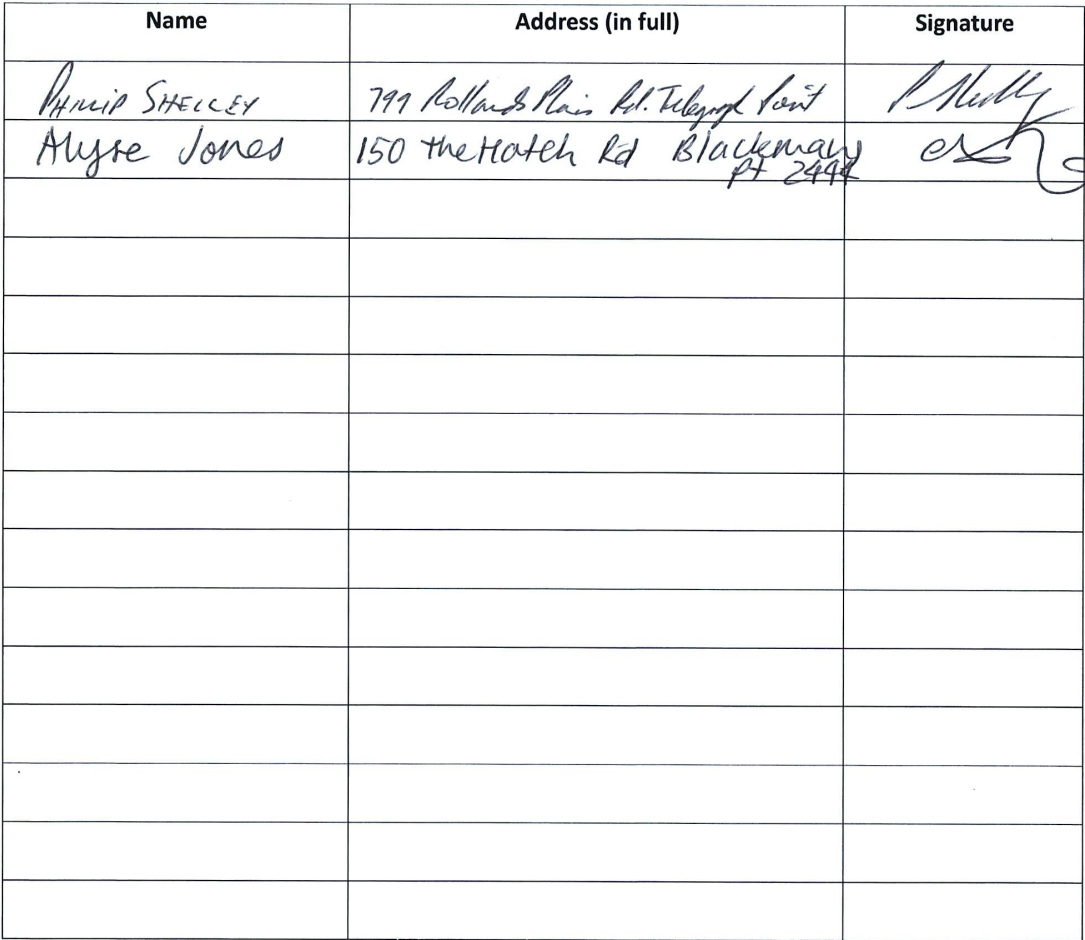 Name Address (in full) Signature
PHILLIP SHELLEY 799 Rollands Plains Rd. Telegraph Point
Alyse Jones 150 the Hatch Rd Blackmans
pt 2444